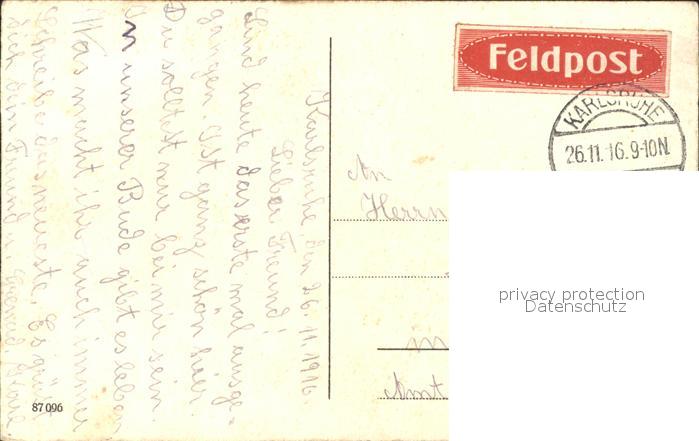 Karlsruhe den 26.11.1916.
Lieber Freund!
Sind heute das erste mal ausge-
gangen. Ist ganz schön hier.
Du solltest nur bei mir sein.
In unserer Bude gibt es leben
Was macht ihr auch immer
Schreibe das neueste. Es grüßt
dich dein Freund u.
87096
Feldpost
KARLSRUHE
26.11.16.9-10N.
An
Herrn
in
Amt
privacy protection
Datenschutz